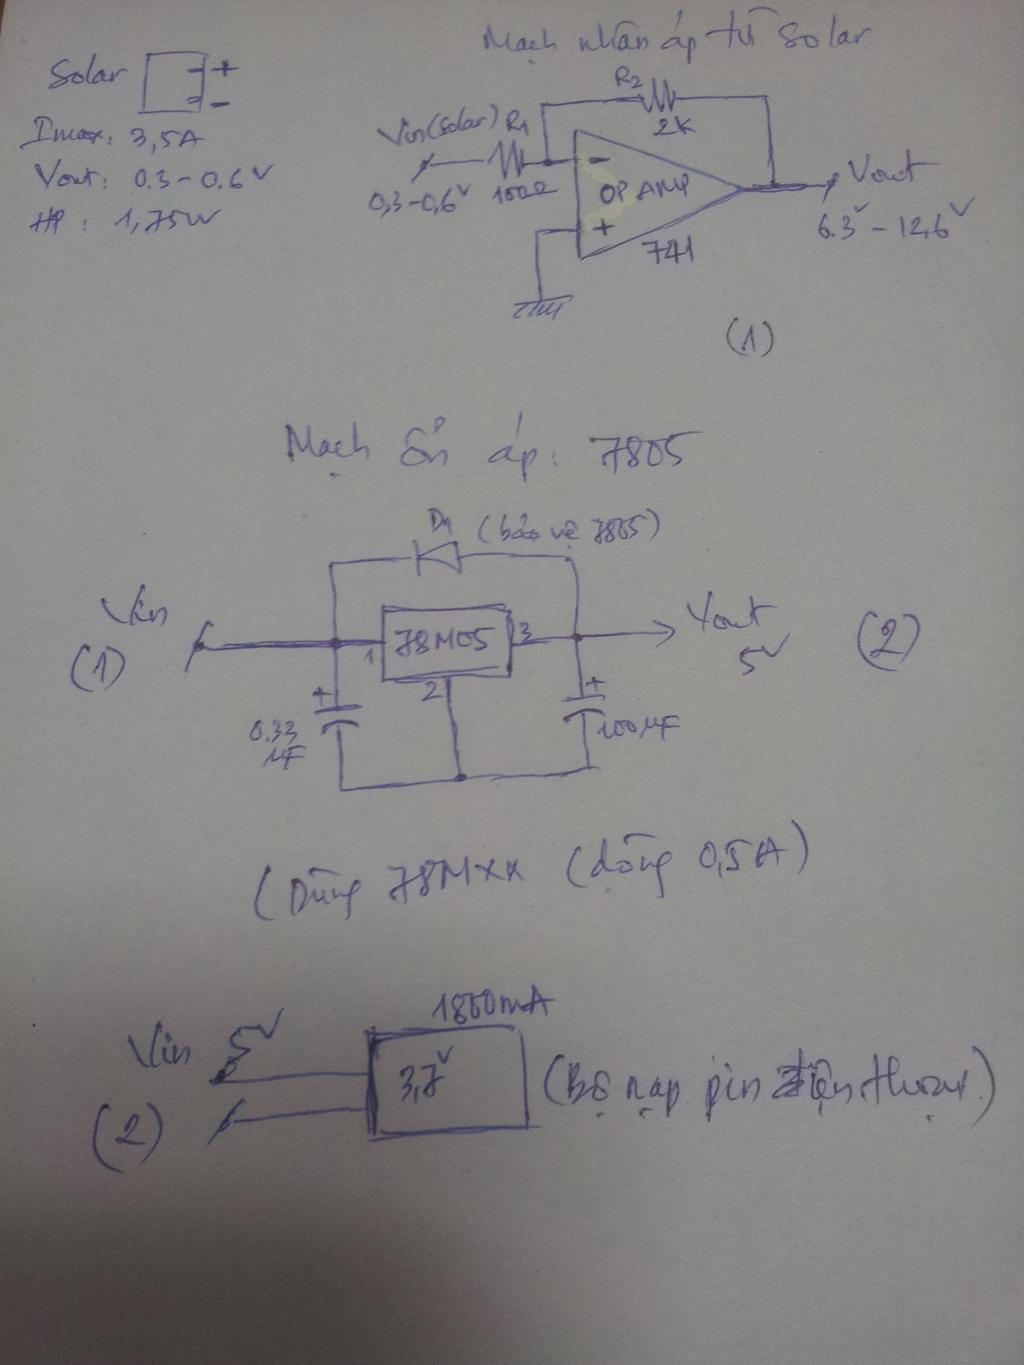 Mạch nhân áp từ Solar
Solar + -
Imax: 3,5A
Vout: 0.3 - 0.6V
HP : 1,75W
Vin (solar) R1
0,3-0,6V 100Ω
R2
2K
- OP AMP +
741
Vout
6.3V - 12,6V
(1)
Mạch ổn áp: 7805
D1 (bảo vệ 7805)
Vin
(1)
1 78M05 3
2
Vout
5V
(2)
+ 0.33 µF
+ 100µF
(Dùng 78Mxx (dòng 0,5A)
1800mA
Vin 5V
3,7V
(Bộ nạp pin điện thoại)
(2)